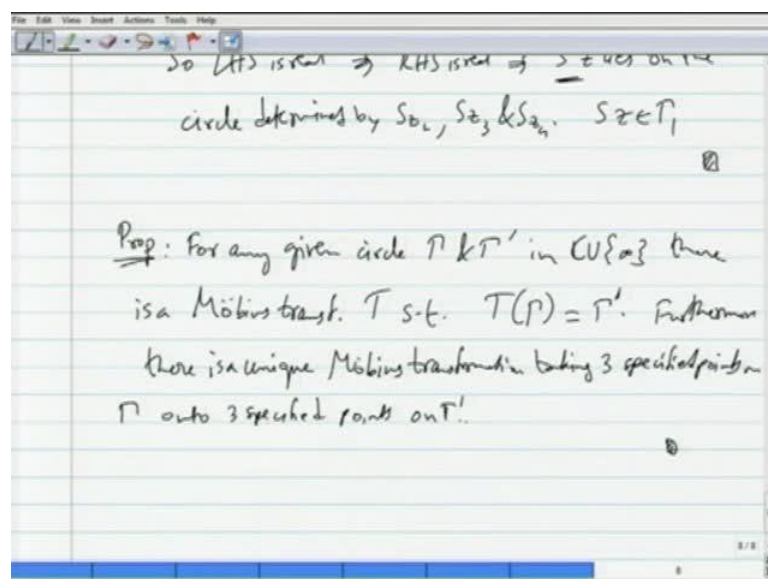 File Edit View Insert Actions Tools Help
So LHS is real ⇒ RHS is real ⇒ Sz lies on the
circle determined by Sz₂, Sz₃ & Sz₄. Sz ∈ Γ₁
Prop: For any given circle Γ & Γ' in ℂ∪{∞} there
is a Möbius transf. T s.t. T(Γ) = Γ'. Furthermore
there is a unique Möbius transformation taking 3 specified points on
Γ onto 3 specified points on Γ'.
8/8
8